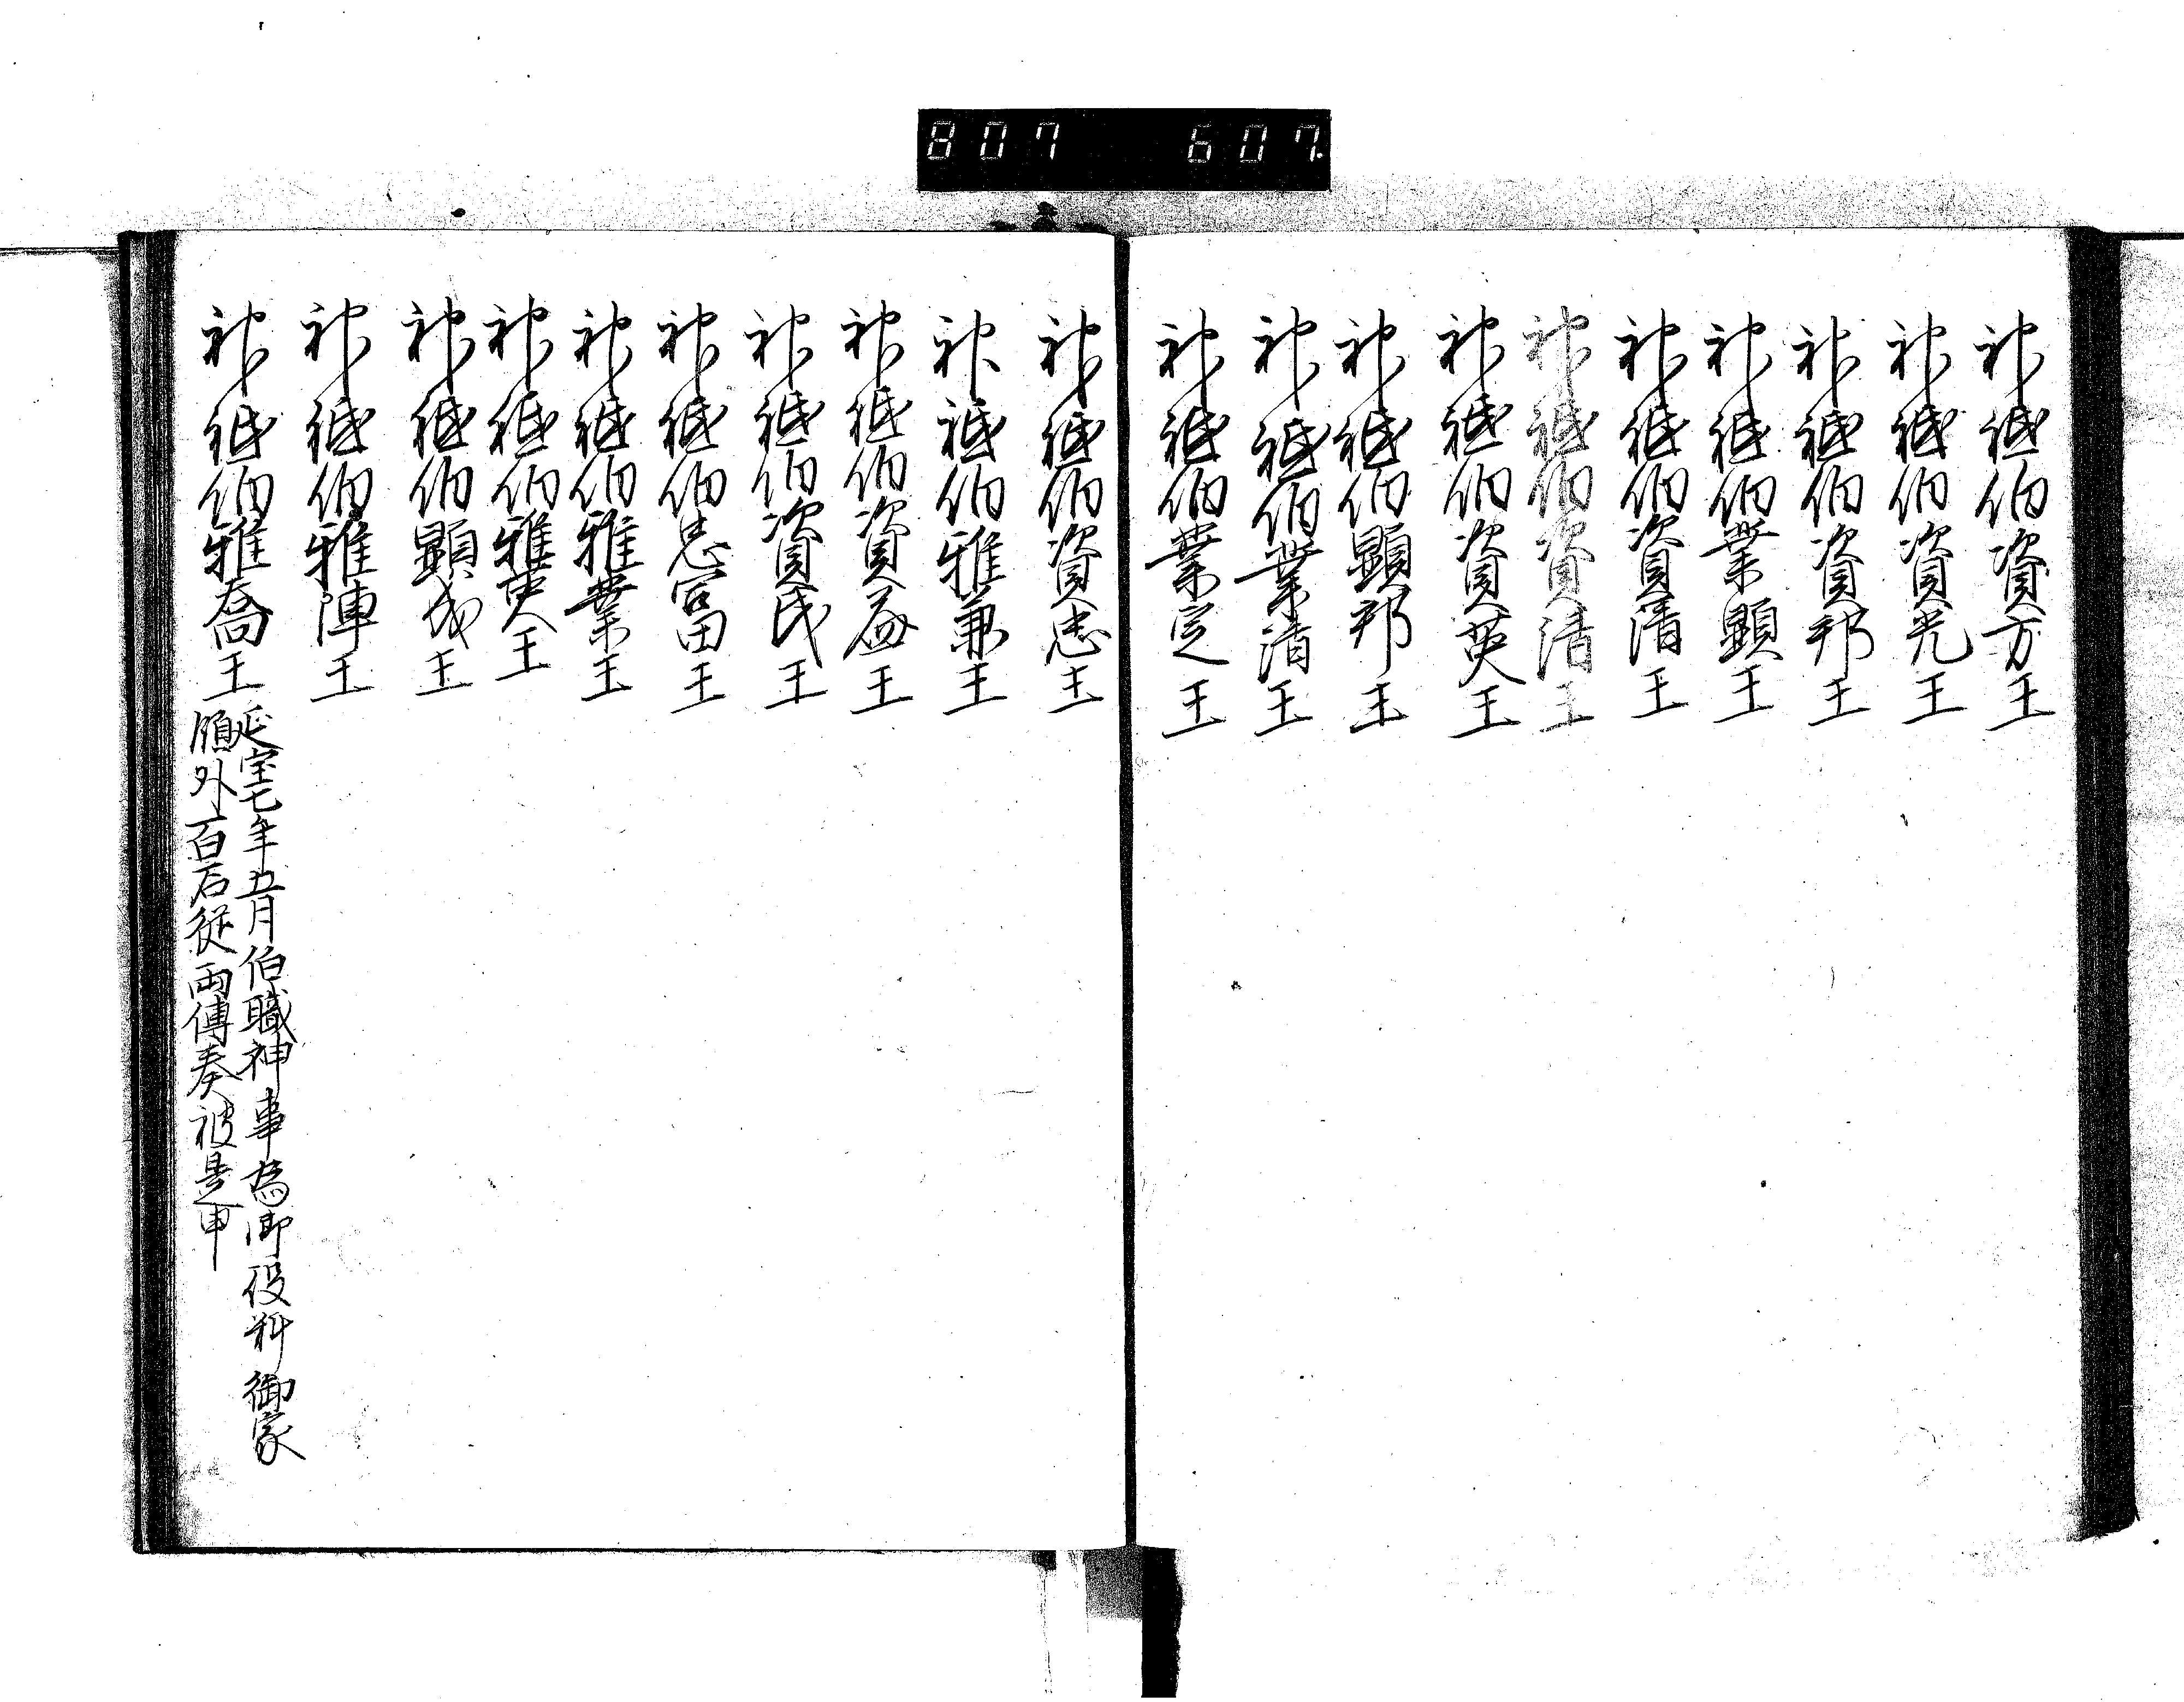 807 607.
神祇伯資方王
神祇伯資光王
神祇伯資邦王
神祇伯業顕王
神祇伯資清王
神祇伯資清王
神祇伯資英王
神祇伯顕邦王
神祇伯業清王
神祇伯業定王
神祇伯資忠王
神祇伯雅兼王
神祇伯資益王
神祇伯資氏王
神祇伯忠富王
神祇伯雅業王
神祇伯雅英王
神祇伯顕成王
神祇伯雅陳王
神祇伯雅喬王
延宝七年五月伯職神事為御役料御家
領外百石従両傳奏被是申